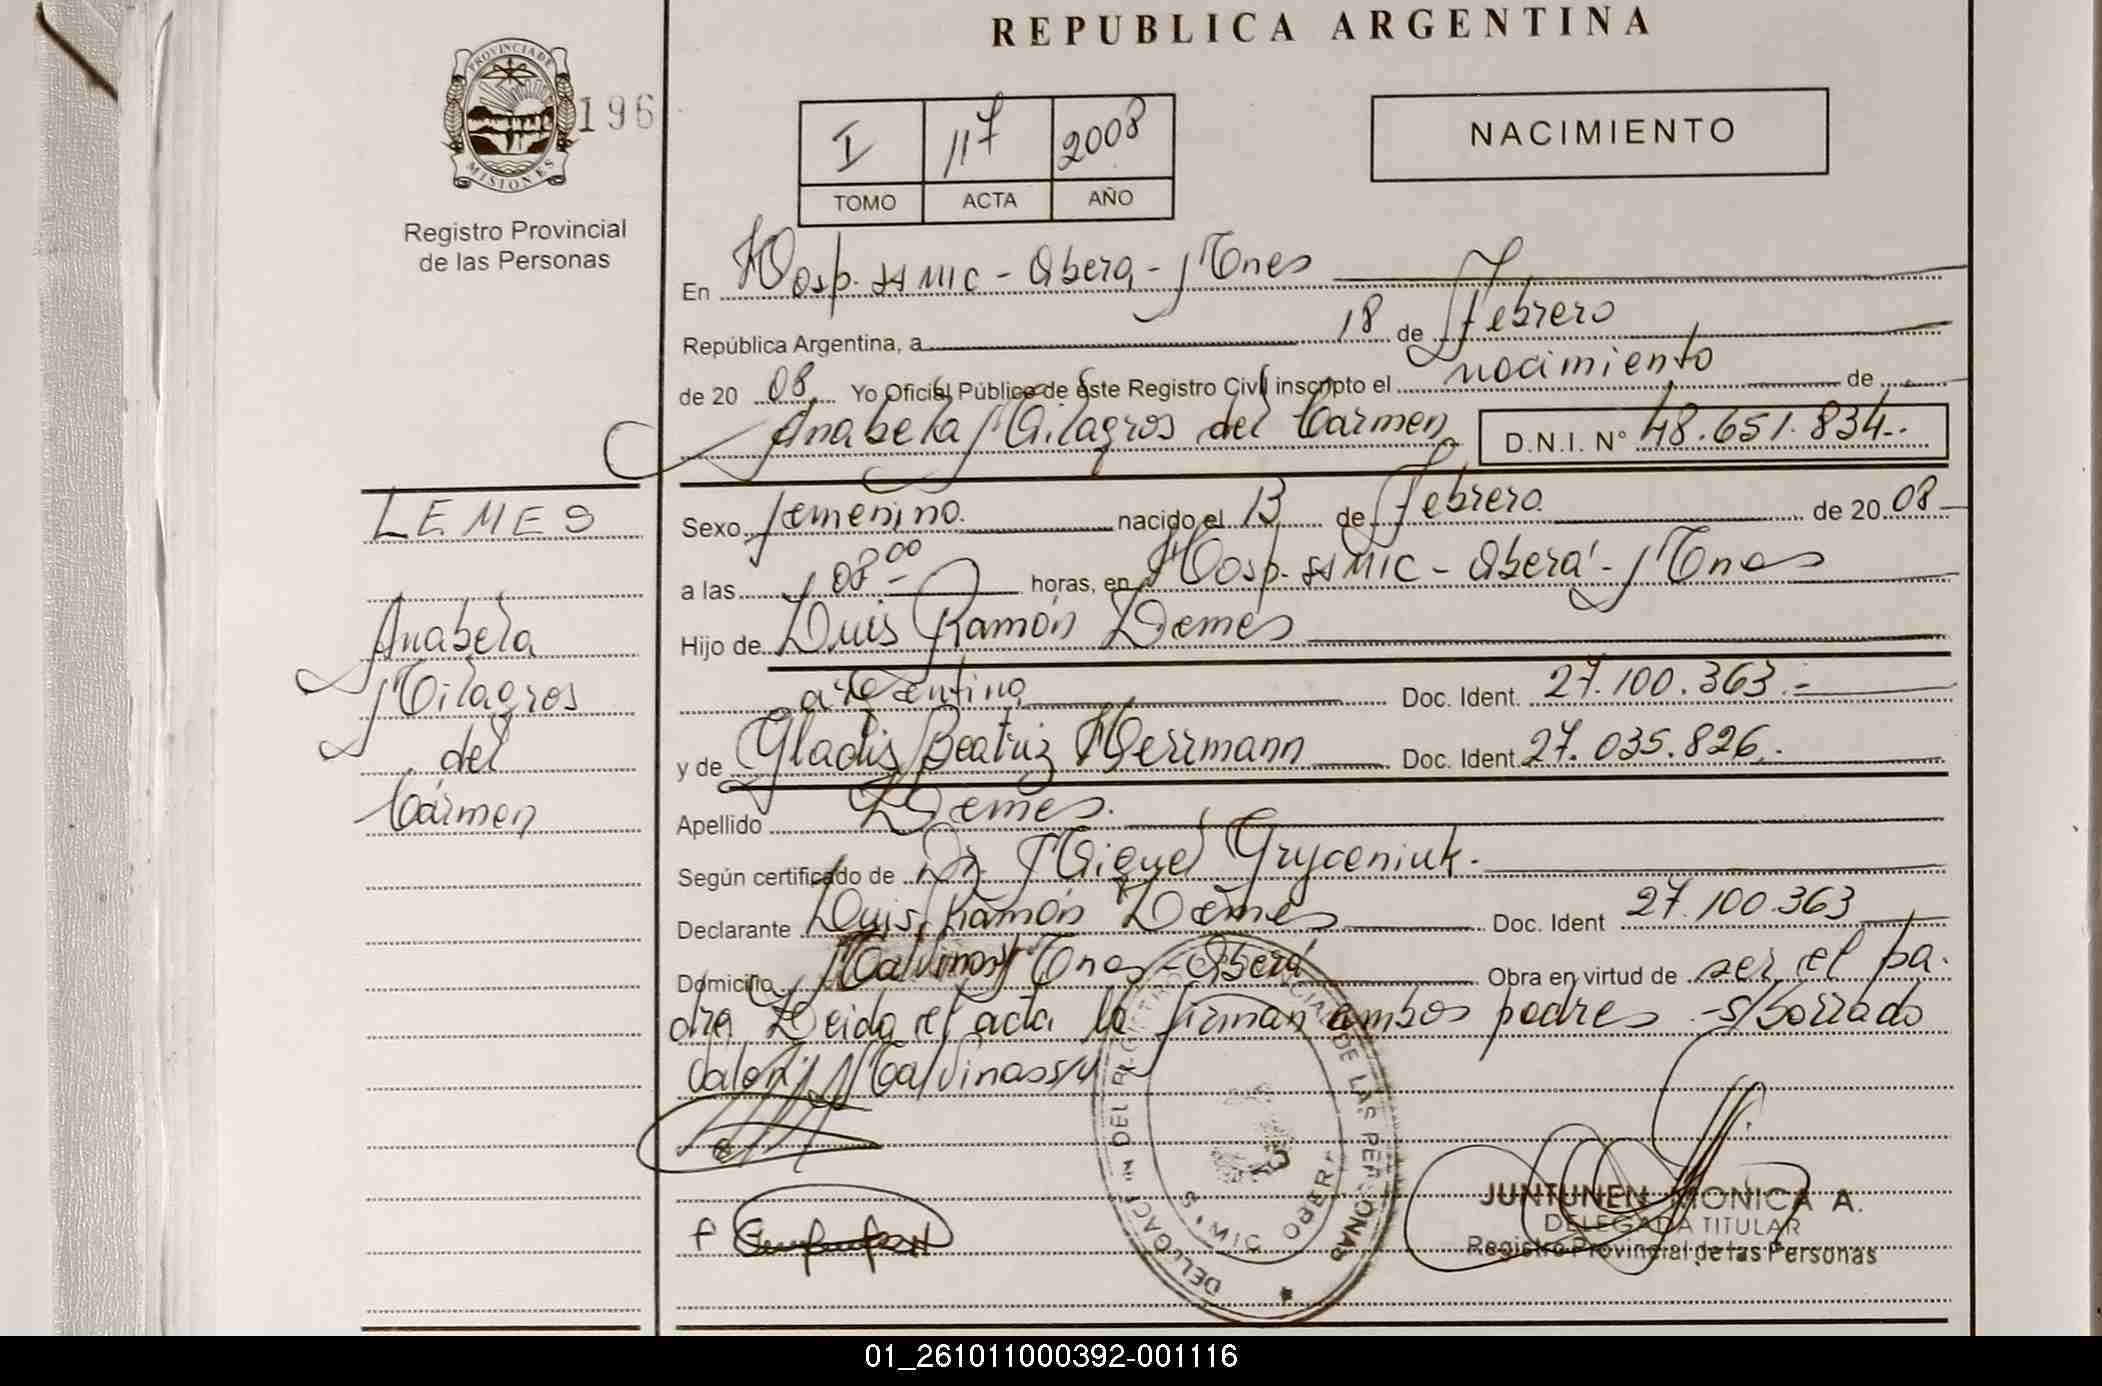 REPUBLICA ARGENTINA
PROVINCIA DE
MISIONES
196
Registro Provincial
de las Personas
I 117 2008
TOMO ACTA AÑO
NACIMIENTO
En Hosp. SAMIC - Obera - Mnes
República Argentina, a 18 de Febrero
de 20 08 Yo Oficial Público de este Registro Civil inscripto el nacimiento de
Anabela Milagros del Carmen D.N.I. N° 48.651.834.
LEMES
Anabela
Milagros
del
Carmen
Sexo femenino. nacido el 13 de Febrero de 20 08
a las 08 00 horas, en Hosp. SAMIC - Oberá - Mnes
Hijo de Luis Ramón Lemes
argentino Doc. Ident. 27.100.363.-
y de Gladis Beatriz Herrmann Doc. Ident. 27.035.826.
Apellido Lemes.
Según certificado de Dr. Miguel Gryceniuk.
Declarante Luis Ramón Lemes Doc. Ident 27.100.363
Domicilio Malvinas Mnes - Oberá Obra en virtud de ser el pa.
dre Leida el acta la firman ambos padres - s/borrado
Malvinas
DELEGACION DEL REGISTRO PROVINCIAL DE LAS PERSONAS
OBERA
JUNTUNEN MONICA A.
DELEGADA TITULAR
Registro Provincial de las Personas
01_261011000392-001116